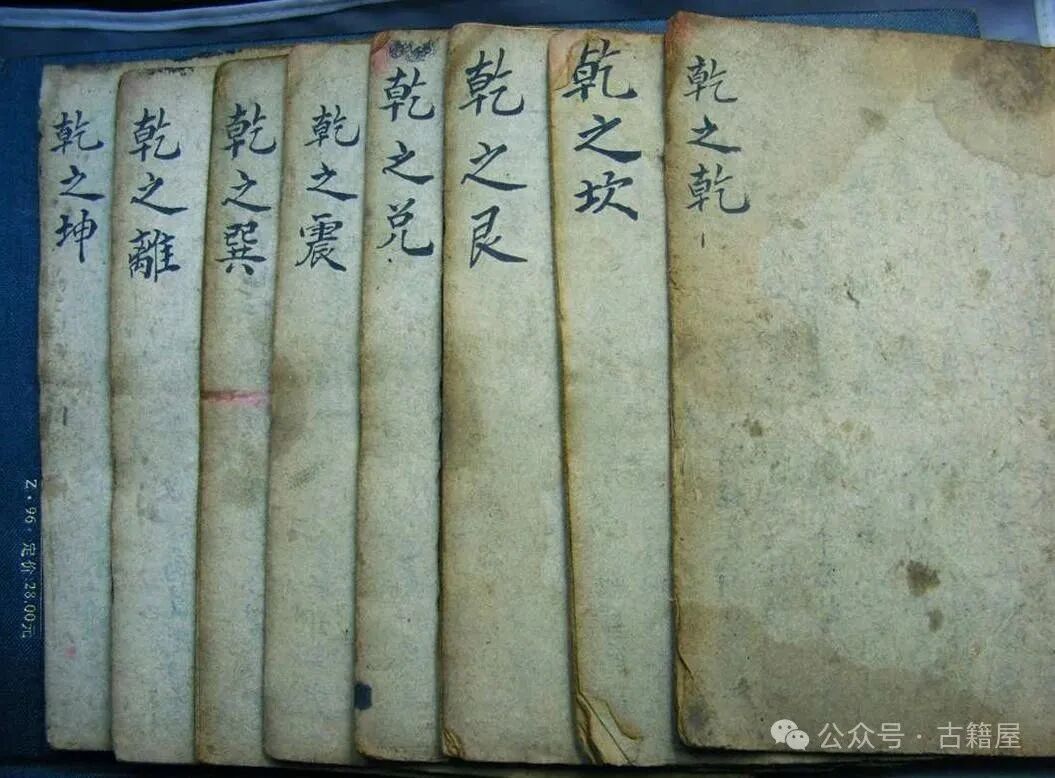 乾之乾
乾之坎
乾之艮
乾之兑
乾之震
乾之巽
乾之離
乾之坤
Z·96·定价:28.00元
公众号·古籍屋